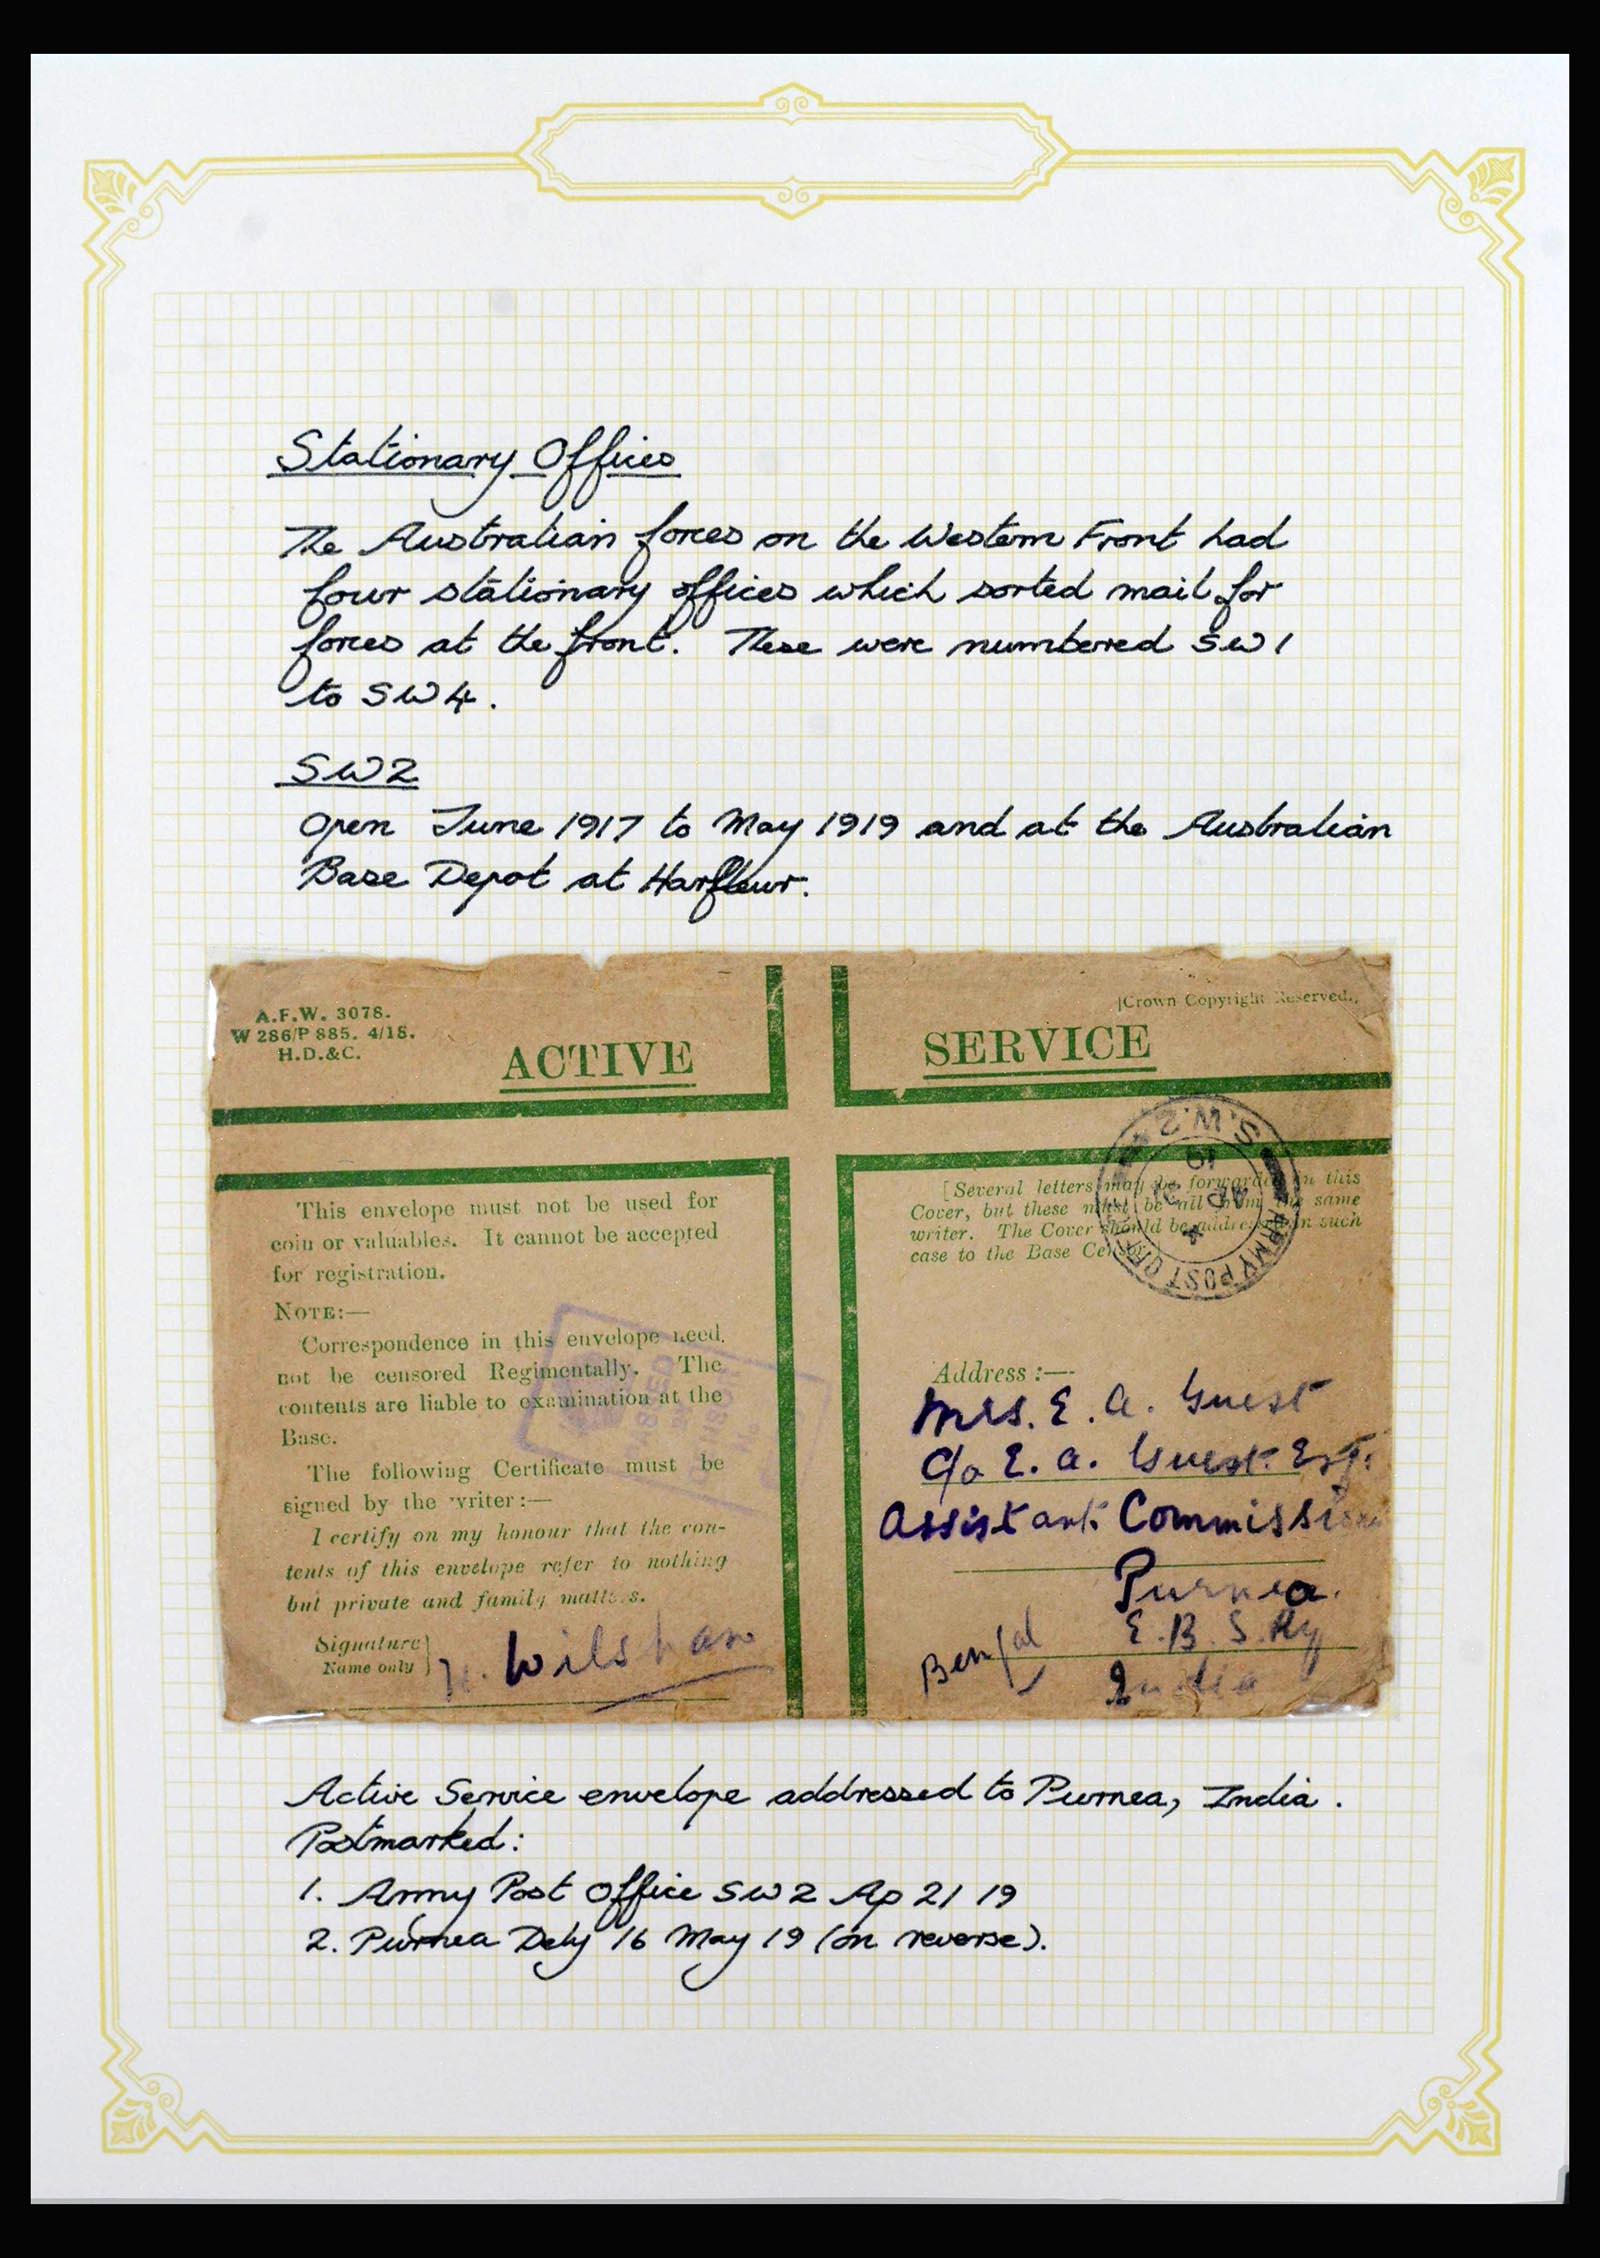 Stationary Offices
The Australian forces on the Western Front had
four stationary offices which sorted mail for
forces at the front. These were numbered SW1
to SW4.
SW2
Open June 1917 to May 1919 and at the Australian
Base Depot at Harfleur.
A.F.W. 3078.
W 286/P 885. 4/18.
H.D.&C.
[Crown Copyright Reserved.
ACTIVE SERVICE
This envelope must not be used for
coin or valuables. It cannot be accepted
for registration.
NOTE:—
Correspondence in this envelope need
not be censored Regimentally. The
contents are liable to examination at the
Base.
The following Certificate must be
signed by the writer:—
I certify on my honour that the con-
tents of this envelope refer to nothing
but private and family matters.
Signature
Name only
Wilshaw
[Several letters may be forwarded in this
Cover, but these must be all from the same
writer. The Cover should be addressed in such
case to the Base Censor.
ARMY POST OFFICE
S.W.2
AP 21
19
Address:—
Mrs. E. A. Guest
c/o E. A. Guest Esq.
Assistant Commission
Purnea.
E.B.S.Ry
Bengal
India
Active Service envelope addressed to Purnea, India.
Postmarked:
1. Army Post Office SW2 Ap 21 19
2. Purnea Dely 16 May 19 (on reverse).